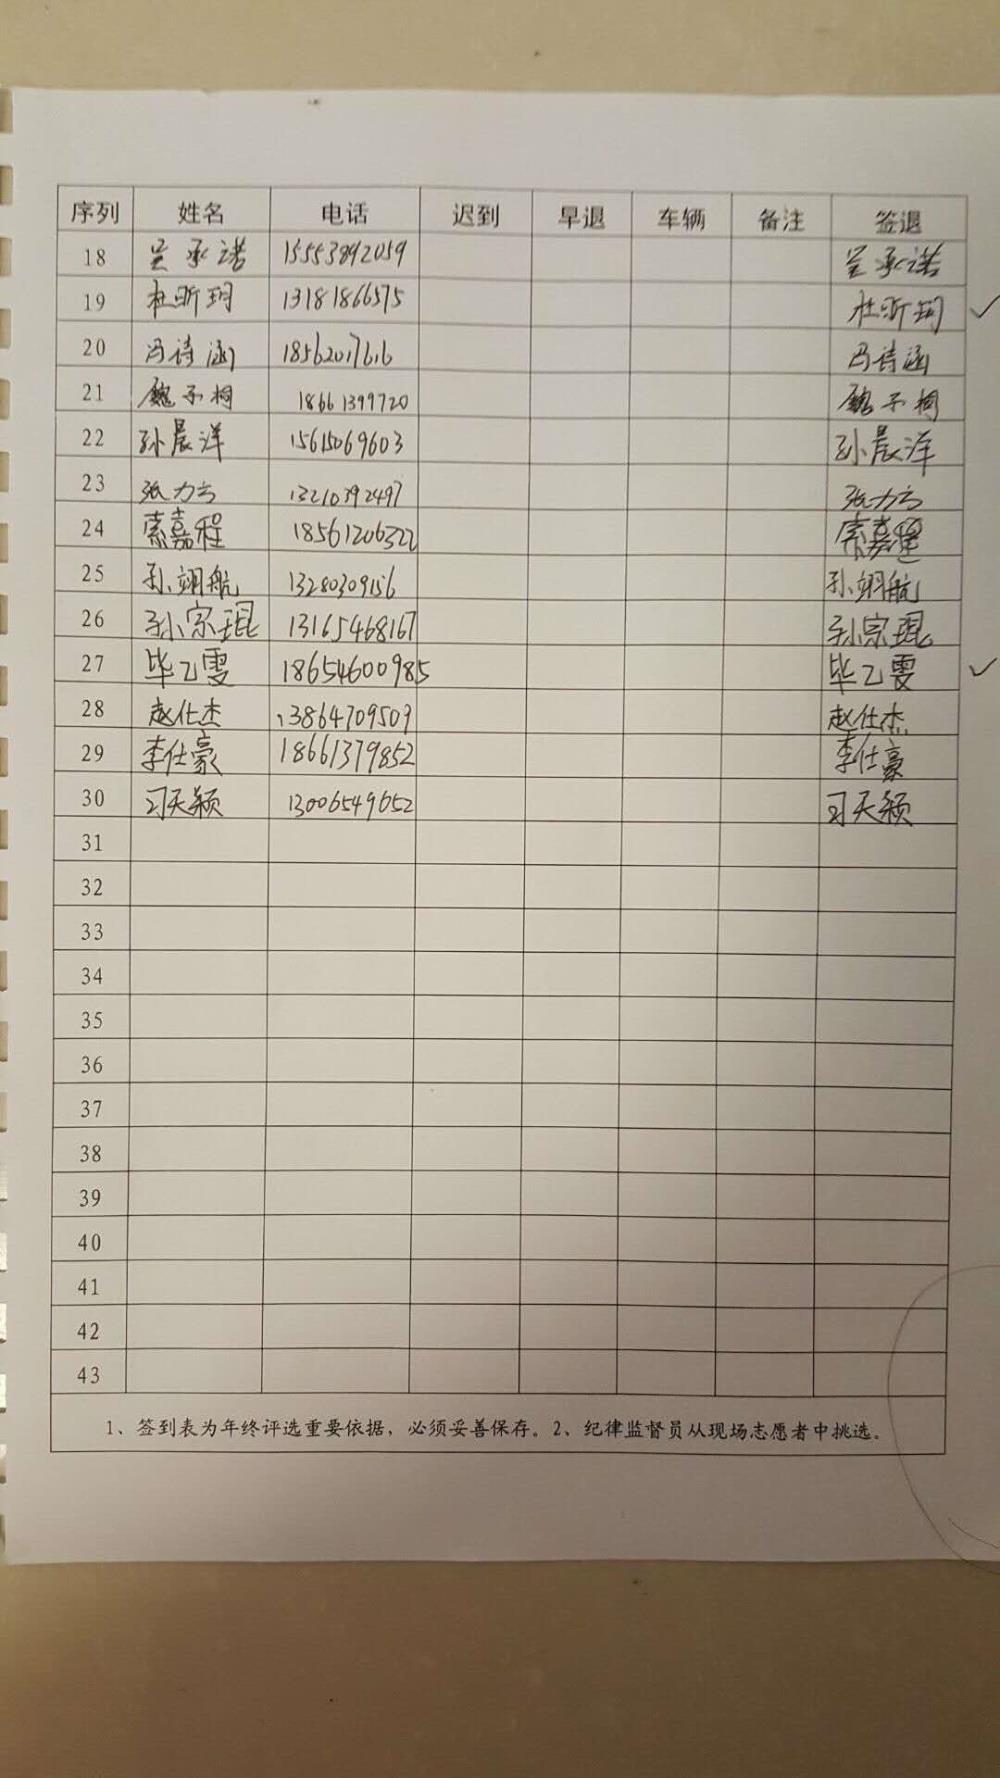 序列 姓名 电话 迟到 早退 车辆 备注 签退
18 吴承诺 15553892059 吴承诺
19 杜昕珂 13181866575 杜昕珂 ✓
20 冯诗涵 18562017616 冯诗涵
21 魏子桐 18661399720 魏子桐
22 孙晨洋 15615069603 孙晨洋
23 张力方 13210392497 张力方
24 索嘉程 18561206322 索嘉程
25 孙翊航 13280309156 孙翊航
26 孙宗琨 13165468167 孙宗琨
27 毕乙雯 18654600985 毕乙雯 ✓
28 赵仕杰 13864709509 赵仕杰
29 李仕豪 18661379852 李仕豪
30 习天颖 13006549652 习天颖
31
32
33
34
35
36
37
38
39
40
41
42
43
1、签到表为年终评选重要依据，必须妥善保存。2、纪律监督员从现场志愿者中挑选。